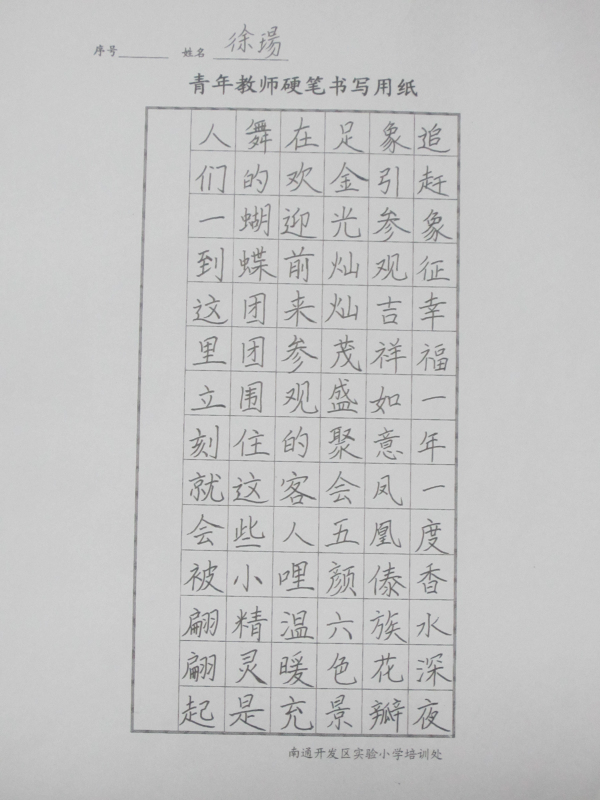 序号 姓名 徐
青年教师硬笔书写用纸
人们一到这里立刻就会被翩翩起
舞的蝴蝶团团围住这些小精灵是
在欢迎前来参观的客人哩温暖充
足金光灿灿茂盛聚会五颜六色景
象引参观吉祥如意凤凰傣族花瓣
追赶象征幸福一年一度香水深夜
南通开发区实验小学培训处